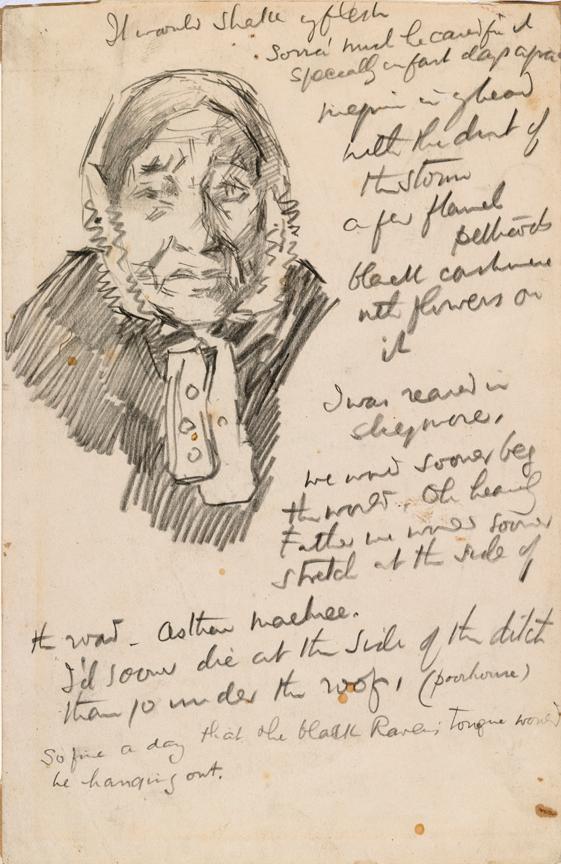 It would shake y flesh
Some must be careful it
specially on fast days
in y head
with the dint of
the storm
a few flannel
petticoats
black cashmere
with flowers on
it
I was reared in
we would sooner beg
the world. Oh heavenly
Father we would sooner
stretch at the side of
the road - Asthore machree.
I'd sooner die at the side of the ditch
than go under the roof, (poorhouse)
So fine a day that the black Raven's tongue would
be hanging out.